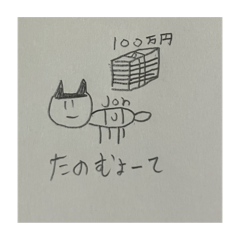 100万円
jon
たのむよーて